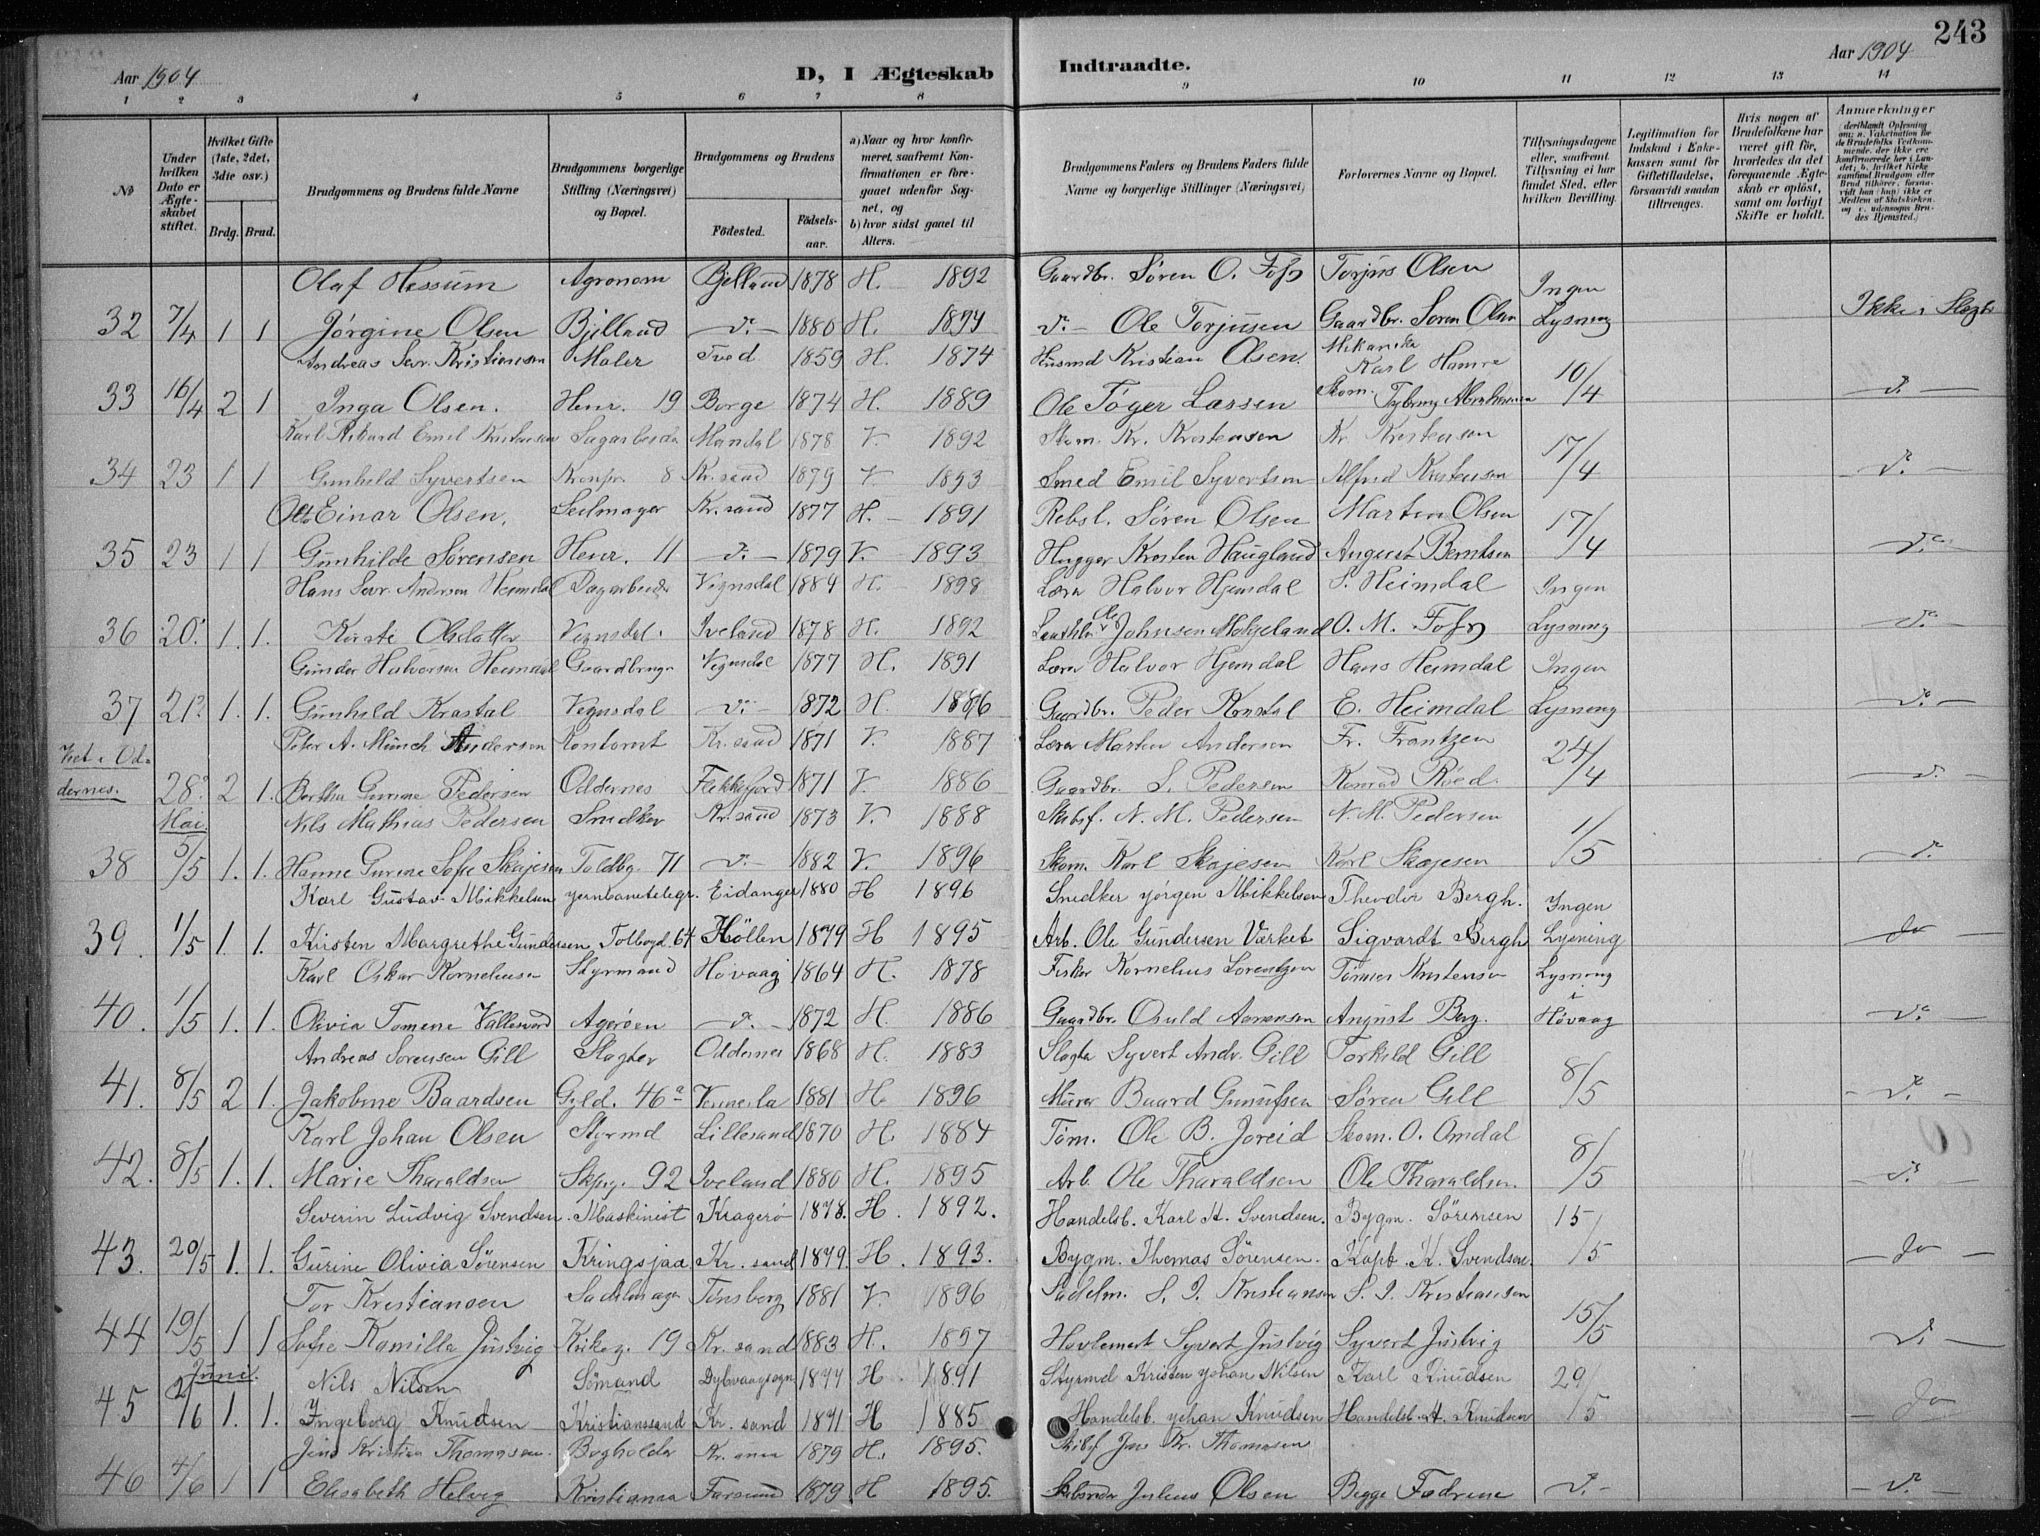 243
Aar 1904 D, I Ægteskab Indtraadte. Aar 1904
1 2 3 4 5 6 7 8 9 10 11 12 13 14
No
Under hvilken Dato er Ægteskabet stiftet.
Hvilket Gifte (1ste, 2det, 3die osv.)
Brdg. Brud.
Brudgommens og Brudens fulde Navne
Brudgommens borgerlige Stilling (Næringsvei) og Bopæl.
Brudgommens og Brudens
Födested. Födselsaar.
a) Naar og hvor konfirmeret, saafremt Konfirmationen er foregaaet udenfor Sognet, og b) hvor sidst gaaet til Alters.
Brudgommens Faders og Brudens Faders fulde Navne og borgerlige Stillinger (Næringsvei)
Forlovernes Navne og Bopæl.
Tillysningsdagene eller, saafremt Tillysning ei har fundet Sted, efter hvilken Bevilling.
Legitimation for Indskud i Enkekassen samt for Giftetilladelse, forsaavidt saadan tiltrænges.
Hvis nogen af Brudefolkene har været gift för, hvorledes da det foregaaende Ægteskab er oplöst, samt om lovligt Skifte er holdt.
Anmærkninger
Olaf Hessum Agronom Bjelland 1878 H. 1892 Gaardbr. Søren O. Foss Torjus Olsen Ingen
32 7/4 1 1 Jørgine Olsen Bjelland d. 1880 H. 1894 d. Ole Torjusen Gaardbr. Søren Olsen Lysning Ikke i Slægt
Andreas Sevr. Kristiansen Maler Tved 1859 H. 1874 Husmd Kristian Olsen. Karl Hamre
33 16/4 2 1 Inga Olsen. Henr. 19 Borge 1874 H. 1889 Ole Töger Lassen Skom. 10/4 d.
Karl Rikard Emil Kristensen Sagarbeider Mandal 1878 V. 1892 Skom. Kr. Kristensen Kr. Kristensen
34 23 1 1 Gunhild Syvertsen Kronpr. 8 Kr.sand 1879 V. 1893 Smed Emil Syvertsen Alfred Kristensen 17/4 d.
Otto Einar Olsen, Seilmager Kr.sand 1877 H. 1891 Rebsl. Søren Olsen Martin Olsen
35 23 1 1 Gunhilde Sørensen Henr. 11 d. 1879 V. 1893 Hugger Kristen Haugland August Berntsen 17/4 d.
Hans Sevr. Andersen Heimdal Dagarbeider Vegusdal 1884 H. 1898 Lærer Halvor Hjemdal S. Heimdal Ingen
36 20. 1. 1. Kirsti Olsdatter Vegusdal. Iveland 1878 H. 1892 Ole Johnsen Mölgeland O. M. Foss Lysning d.
Gunder Halvorsen Heimdal Gaardbruger Vegusdal 1877 H. 1891 Lærer Halvor Hjemdal Hans Heimdal Ingen
37 21. 1. 1. Gunhild Krastal Vegusdal d. 1872 H. 1886 Gaardbr. Peder Krastal E. Heimdal Lysning d.
Peter A. Münch Andersen Kontorist Kr.sand 1871 V. 1887 Lærer Martin Andersen Fr. Frantzen
Viet i Oddernes. 28. 2 1. Bertha Gurine Pedersen Oddernes Flekkefjord 1871 V. 1886 Gaardbr. S. Pedersen Konrad Röed. 24/4 d.
Mai. Nils Mathias Pedersen Snedker Kr.sand 1873 V. 1888 Skibsf. N. M. Pedersen N. M. Pedersen
38 5/5 1. 1. Hanne Gurine Sofie Skajesen Toldbg. 71 d. 1882 V. 1896 Skom. Karl Skajesen Karl Skajesen 1/5 d.
Karl Gustav Mikkelsen jernbanetelegr. Eidanger 1880 H 1896 Snedker Jörgen Mikkelsen Theodor Bergh. Ingen
39. 1/5 1. 1. Kirsten Margrethe Gundersen, Tolbogd. 64 Höllen 1879 H 1895 Arb. Ole Gundersen Værket Sigvardt Bergh Lysning do
Karl Oskar Kornelius­en Styrmand Høvaag 1864 H. 1878 Fisker Kornelius Lorentzen Tomas Kristensen Lysning
40. 1/5 1. 1. Olivia Tomene Vallesverd Agerøen d. 1872 H. 1886 Gaardbr. Osuld Aanensen August Berg. i Høvaag d.
Andreas Sørensen Gill Slagter Oddernes 1868 H. 1883 Slagter Syvert Andr. Gill Torkild Gill
41. 8/5 2 1. Jakobine Baardsen Gyld. 46 Vennesla 1881 H. 1896 Murer Baard Gunufsen Søren Gill 8/5 d.
Karl Johan Olsen Styrmd Lillesand 1870 H. 1884 Tøm. Ole B. Joreid Skom. O. Omdal
42. 8/5 1. 1. Marie Tharaldsen Skpsg. 92 Iveland 1880 H. 1895 Arb. Ole Tharaldsen Ole Tharaldsen. 8/5 d.
Severin Ludvig Svendsen. Maskinist Kragerø 1878. H. 1892. Handelsb. Karl A. Svendsen. Bygm. Sörensen
43. 20/5 1. 1. Gurine Olivia Sörensen Kringsjaa Kr. sand 1879. H. 1893. Bygm. Thomas Sörensen. Kapt. K. Svendsen. 15/5 do
Tor Kristiansen Sadelmager Tønsberg 1881 V. 1896 Sadelm. S. I. Kristiansen S. I. Kristiansen
44 19/5 1 1 Sofie Kamilla Justvig Kirkeg. 19 Kr. sand 1883 H. 1897 Havlemest Syvert Justvig Syvert Justvig 15/5 d.
Juni. Nils Nilsen Sömand Dybvaagsogn 1877 H. 1891 Styrmd Kristen Johan Nilsen Karl Knudsen
45 2/6 1. 1. Ingeborg Knudsen Kristianssand Kr. sand 1871. H 1885 Handelsb. Johan Knudsen Handelsb. A. Knudsen 29/5 do
Jens Kristian Thomassen. Bogholder 1879 H. 1895. Skibsf Jens Kr. Thomassen
46 4/6 1 1 Elisabeth Helvig Kristiania Farsund 1879 H 1895. Skibsreder Julius Olsen Begge Fædrene d. d.